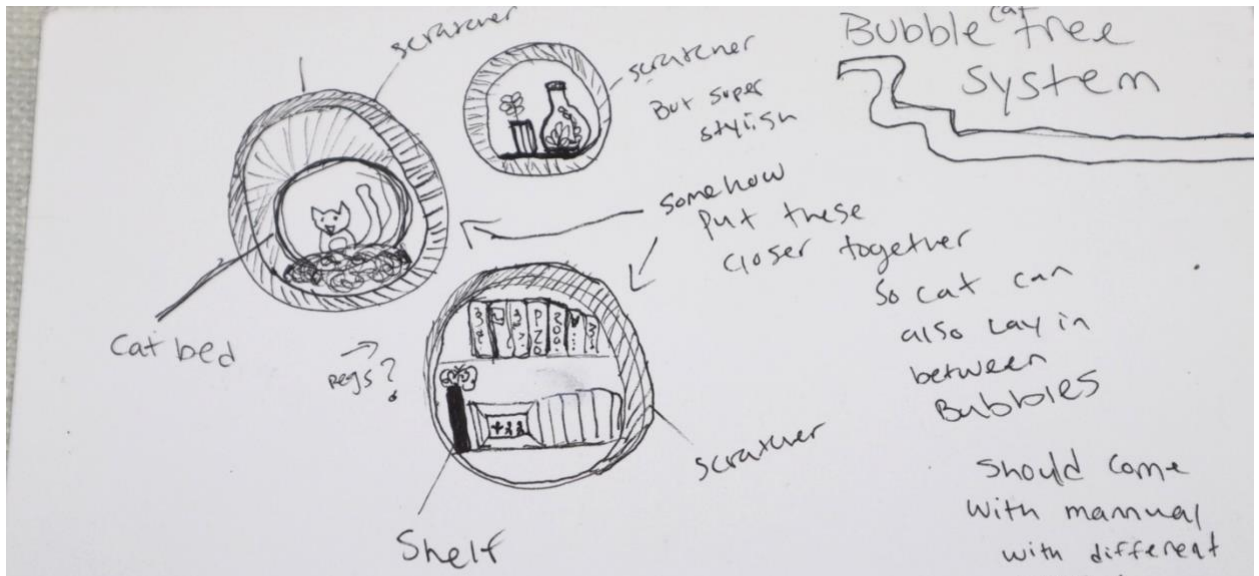 scratcher
scratcher
But super
stylish
Bubble cat Tree
System
somehow
Put these
closer together
So cat can
also Lay in
between
Bubbles
Cat bed
pegs?
scratcher
Shelf
Should Come
With mannual
with different